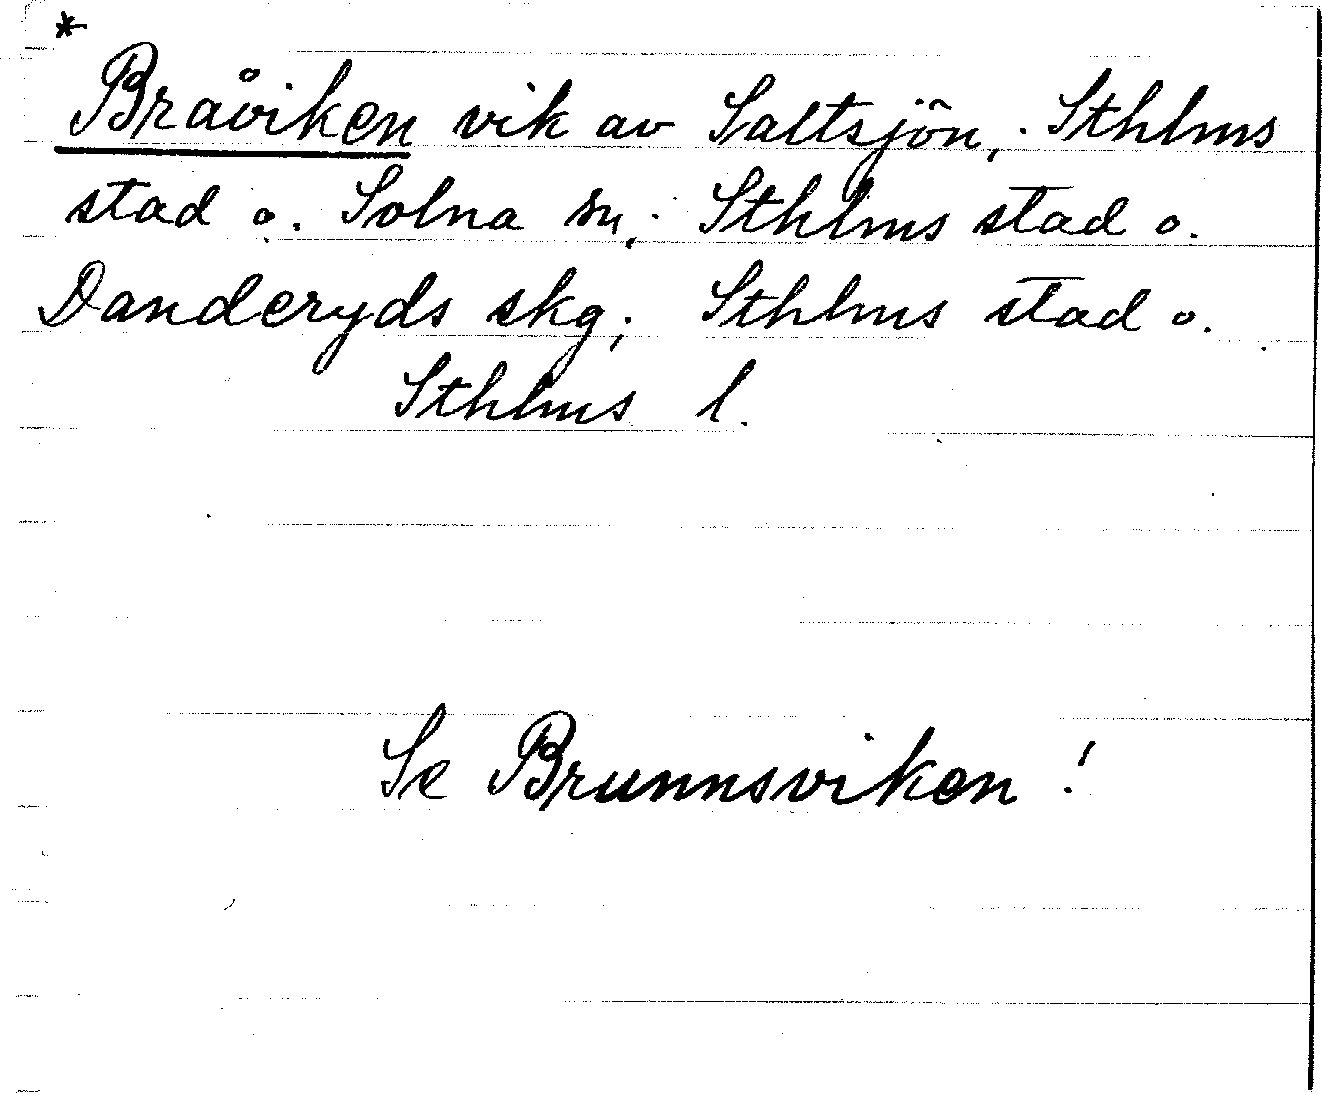 *
Bråviken vik av Saltsjön, Sthlms
stad o. Solna sn, Sthlms stad o.
Danderyds skg; Sthlms stad o.
Sthlms l.
Se Brunnsviken!